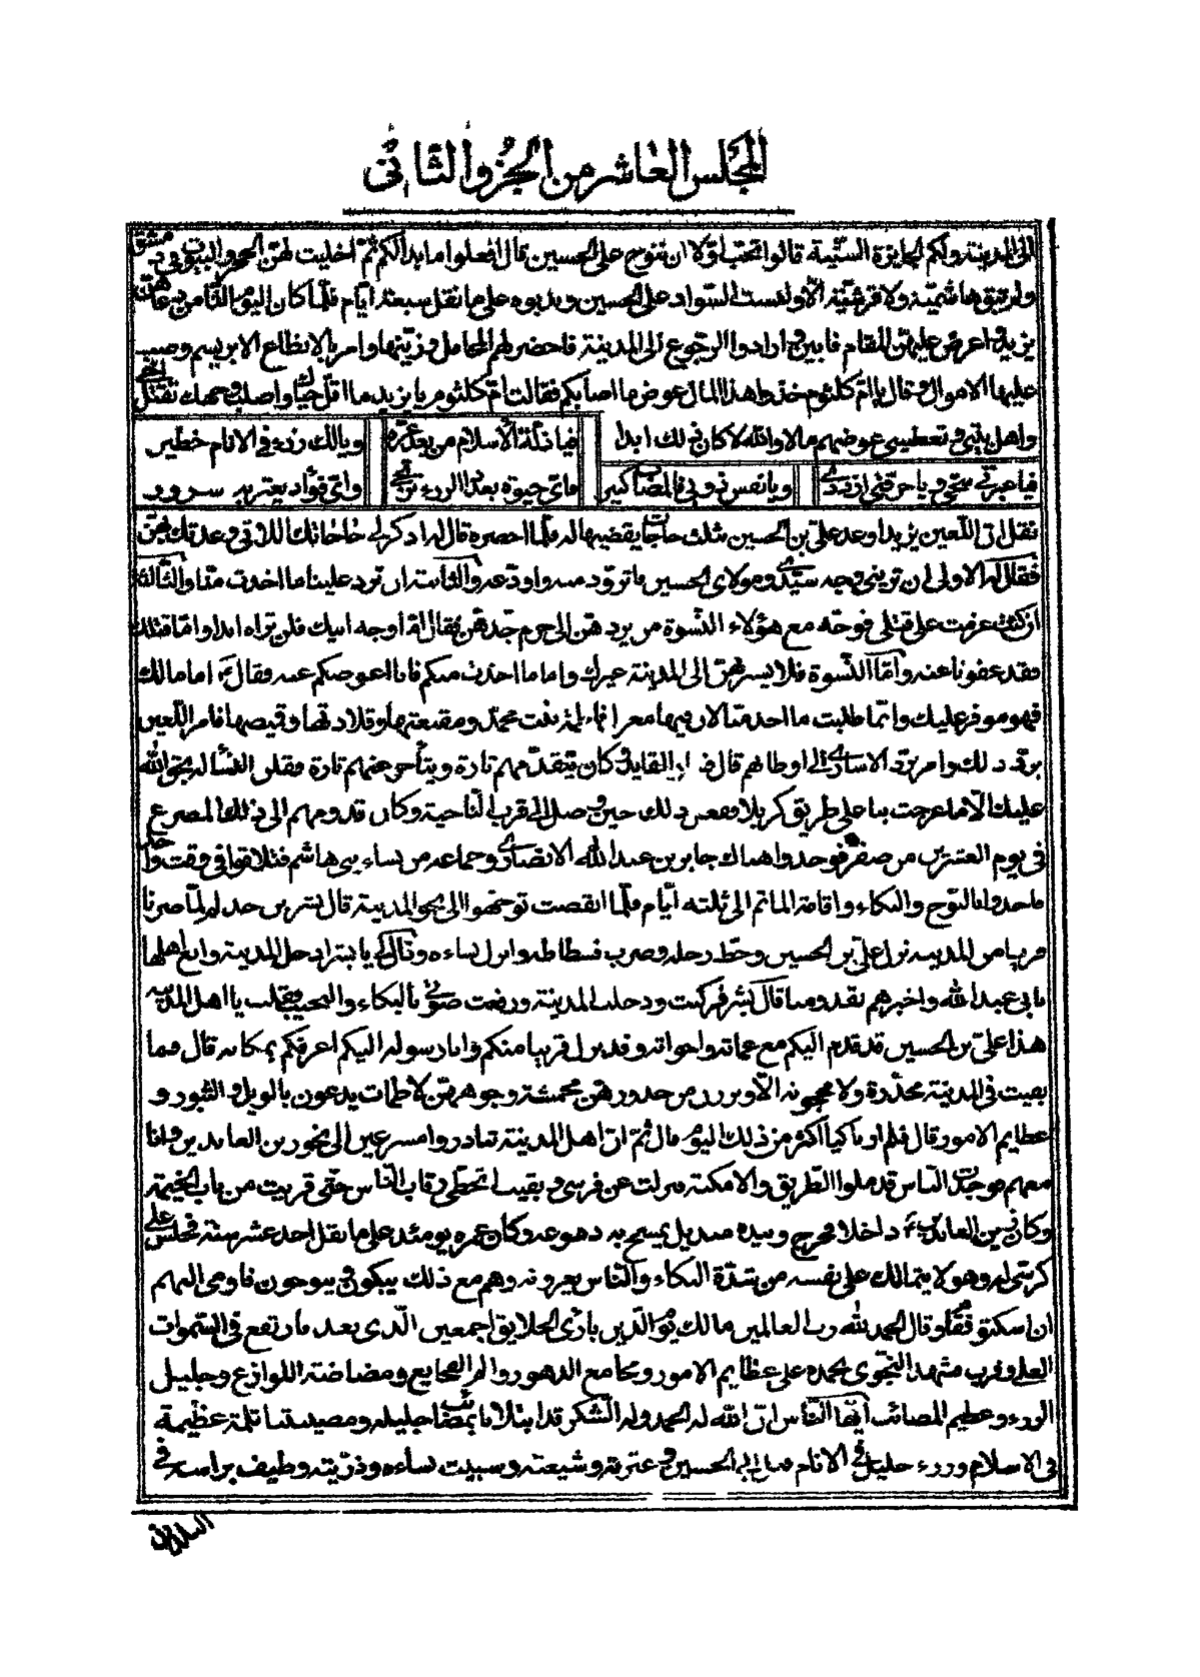 المجلس العاشر من الجزء الثاني
الى المدينة ولكم الجايزة السنيّة قالوا نحبّ اوّلا ان ننوح على الحسين قال افعلوا ما بدا لكم ثمّ اخليت لهنّ الحجر والبيوت في دمشق
ولم تبق هاشميّة ولا قرشيّة الّا ولبست السّواد على الحسين وندبوه على ما نقل سبعة ايّام فلمّا كان اليوم الثامن دعاهنّ
يزيد واعرض عليهنّ المقام فابين وارادوا الرّجوع الى المدينة فاحضر لهم المحامل وزيّنها وامر بالانطاع الابريسم وصبّ
عليها الاموال وقال يا امّ كلثوم خذوا هذا المال عوض ما اصابكم فقالت امّ كلثوم يا يزيد ما اقلّ حياك واصلب وجهك تقتل اخي
واهل بيتي وتعطيني عوضهم مالا والله لا كان ذلك ابدا
فيا ذلّة الاسلام من بعد عزّه
ويا لك رزء في الانام خطير
فيا عبرتي سحّي ويا حرقتي ازددي
ويا نفس ذوبي فالمصاب كبير
فاي حيوة بعد ذا الرزء ترتجى
واي فؤاد يعتريه سرور
نقل انّ اللّعين يزيد اوعد علي بن الحسين بثلث حاجات يقضيها له فلمّا احضره قال له اذكر لي حاجاتك اللاتي وعدتك بهنّ
فقال له الاولى ان تريني وجه سيّدي ومولاي الحسين فاتزوّد منه واودّعه والثانية ان تردّ علينا ما اخذت منّا والثالثة
ان كنت عزمت على قتلي فوجّه مع هؤلاء النّسوة من يردهن الى حرم جدّهنّ فقال امّا وجه ابيك فلن تراه ابدا وامّا قتلك
فقد عفونا عنه وامّا النّسوة فلا يسيرهنّ الى المدينة غيرك واما ما اخذت منكم فانا اعوضكم عنه فقال اما مالك
فهو موفر عليك وانّما طلبت ما اخذ منّا لان فيها مغزل فاطمة بنت محمّد ومقنعتها وقلادتها وقميصها فامر اللّعين
بردّ ذلك وامر بردّ الاسارى الى اوطانهم قال القايد وكان يتقدّمهم تارة ويتأخّر عنهم تارة فقلن النّساء له بحق الله
عليك الّا ما عرجت بنا على طريق كربلا ففعل ذلك حين وصل الى قرب النّاحية وكان قدومهم الى ذلك المصرع
في يوم العشرين من صفر فوجدوا هناك جابر بن عبد الله الانصاري وجماعة من نساء بني هاشم فتلاقوا في وقت واحد
فاخذوا بالنّوح والبكاء واقامة الماتم الى ثلثة ايّام فلمّا انقضت توجّهوا الى نحو المدينة قال بشر بن حذلم لمّا صرنا
قريبا من المدينة نزل علي بن الحسين وحطّ رحله وضرب فسطاطه وانزل نساءه وقال لي يا بشر ادخل المدينة وانع اهلها
بابي عبد الله واخبرهم بقدومنا قال بشر فركبت ودخلت المدينة ورفعت صوتي بالبكاء والنحيب وقلت يا اهل المدينة
هذا علي بن الحسين قد قدم اليكم مع عمّاته واخواته وقد نزل قريبا منكم وانا رسوله اليكم اعرفكم بمكانه قال فما
بقيت في المدينة مخدّرة ولا محجوبة الّا وبرزن من خدورهنّ مخمشة وجوههنّ لاطمات يدعون بالويل والثبور و
عظايم الامور قال فلم ار باكيا اكثر من ذلك اليوم قال ثمّ انّ اهل المدينة تبادروا مسرعين الى نحو زين العابدين وانا
معهم فوجدت النّاس قد ملوا الطّريق والامكنة فنزلت عن فرسي وبقيت اتخطّى رقاب النّاس حتّى قربت من باب الخيمة
وكان زين العابدين داخلا فخرج وبيده منديل يمسح به دموعه وكان عمره يومئذ على ما نقل احد عشر سنة فجلس على
كرسي له وهو لا يتمالك على نفسه من شدّة البكاء والنّاس يعزونه وهم مع ذلك يبكون وينوحون فاومى اليهم
ان اسكتوا فقام وقال الحمد لله ربّ العالمين مالك يوم الدّين بارئ الخلايق اجمعين الّذي بعد فارتفع في السّموات
العلى وقرب فشهد النّجوى نحمده على عظايم الامور وفجايع الدهور والم الفجايع ومضاضة اللواذع وجليل
الرزء وعظيم المصائب ايّها النّاس انّ الله له الحمد وله الشّكر قد ابتلانا بمصائب جليلة ومصيبتنا ثلمة عظيمة
في الاسلام ورزء جليل في الانام قتل ابي الحسين وعترته وشيعته وسبيت نساءه وذرّيته وطيف براسه في
البلدان